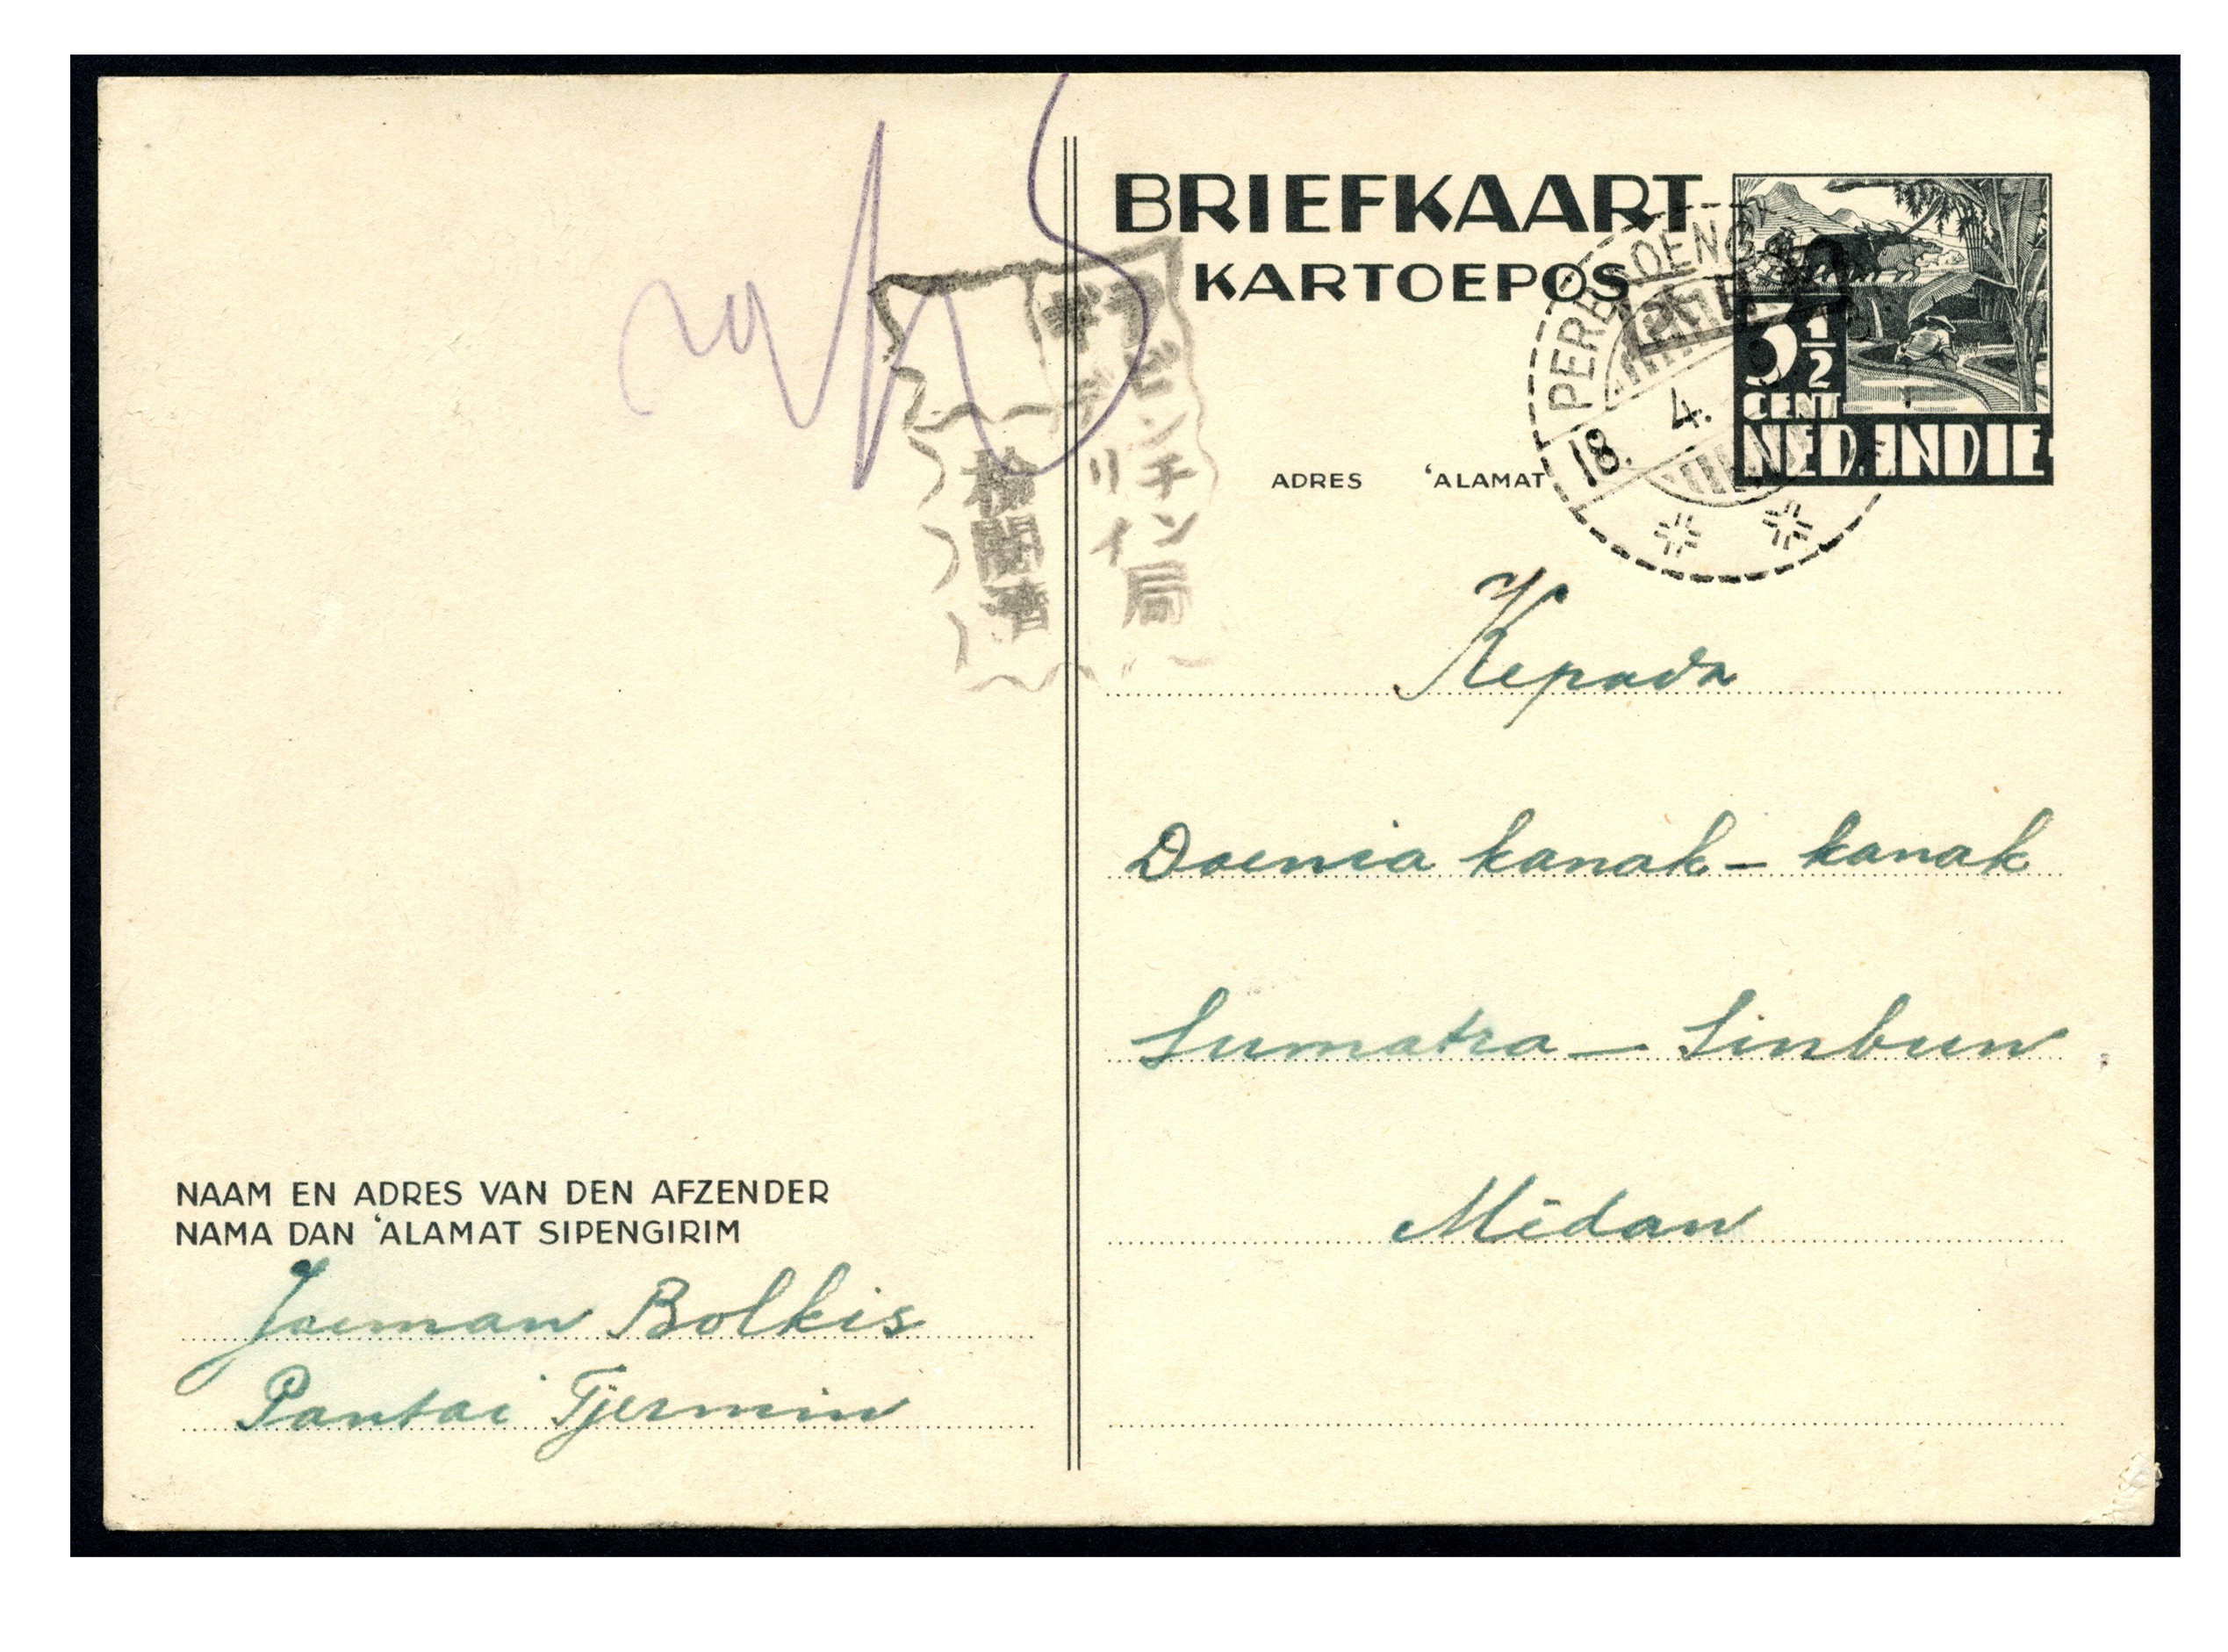 BRIEFKAART
KARTOEPOS
3 1/2
CENT
NED. INDIE
18. 4.
ADRES 'ALAMAT
テビンチン局
リイ
検閲済
Kepada
Doenia kanak - kanak
Sumatra - Sinbun
Médan
NAAM EN ADRES VAN DEN AFZENDER
NAMA DAN 'ALAMAT SIPENGIRIM
Joeman Bolkis
Pantai Tjermin